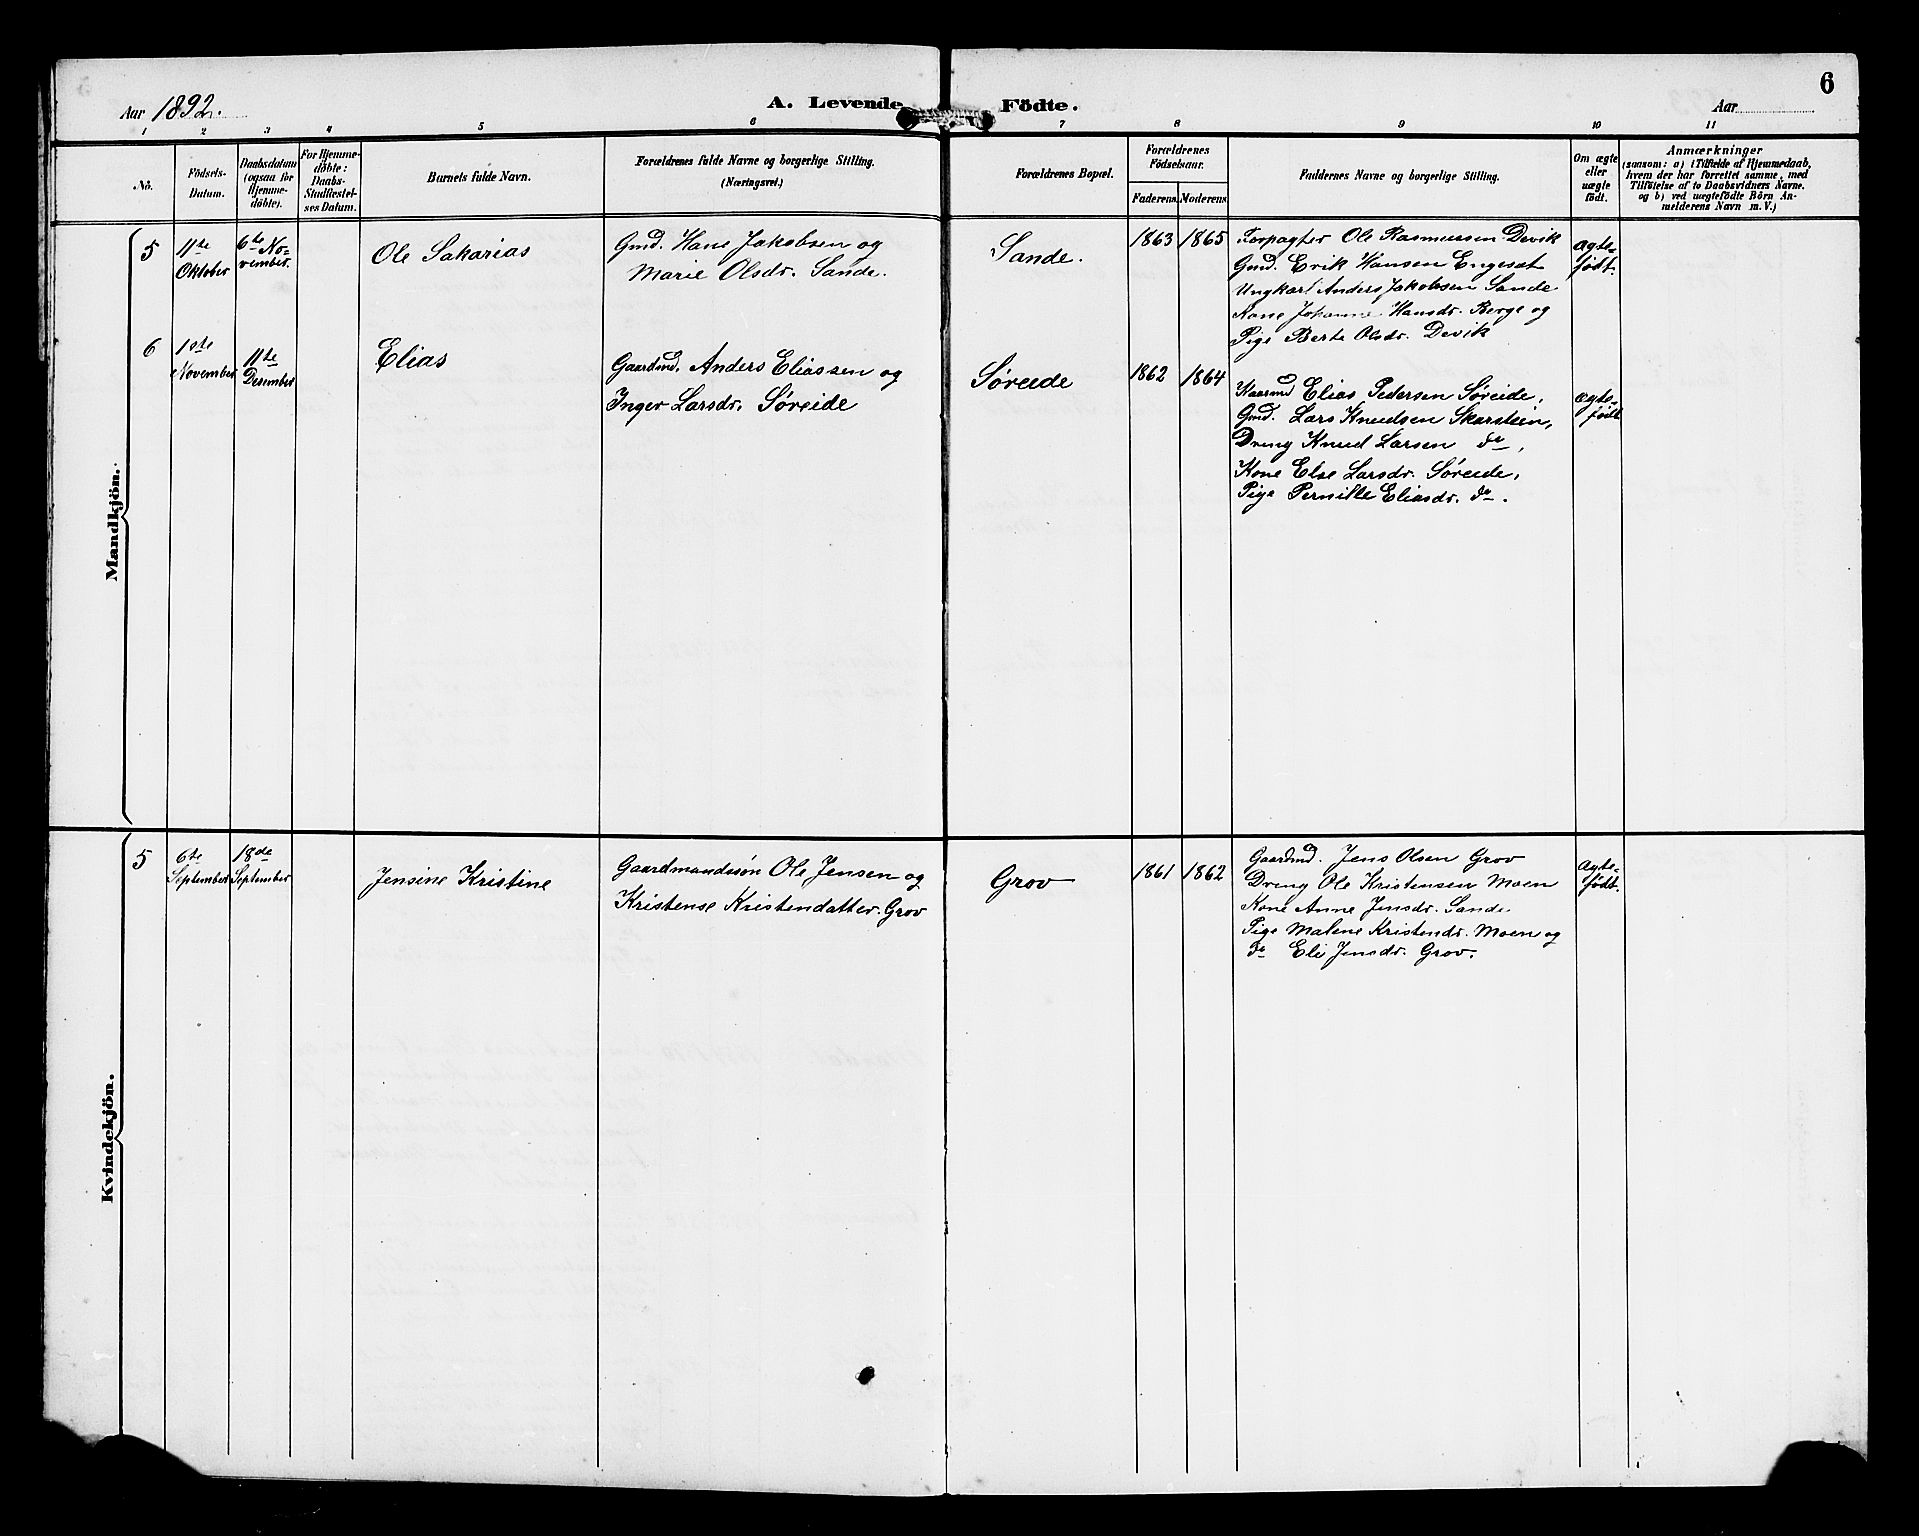 6
Aar 1892.
A. Levende Födte.
Aar
1 2 3 4 5 6 7 8 9 10 11
No.
Födsels-
Datum.
Daabsdatum
(ogsaa for
Hjemme-
döbte).
For Hjemme-
döbte:
Daabs-
Stadfæstel-
ses Datum.
Barnets fulde Navn.
Forældrenes fulde Navne og borgerlige Stilling.
(Næringsvei.)
Forældrenes Bopæl.
Forældrenes
Födselsaar.
Faderens. Moderens.
Faddernes Navne og borgerlige Stilling.
Om ægte
eller
uægte
födt.
Anmærkninger
(saasom: a) i Tilfælde af Hjemmedaab,
hvem der har forrettet samme, med
Tilföielse af to Daabsvidners Navne.
og b) ved uægtefödte Börn An-
melderens Navn m. V.)
Mandkjön.
5
11te
Oktober
6te No-
vember.
Ole Sakarias
Gmd. Hans Jakobsen og
Marie Olsdr. Sande.
Sande.
1863 1865
Forpagter Ole Rasmussen Devik
Gmd. Erik Hansen Engeset
Ungkarl Anders Jakobsen Sande
Kone Johanne Hansdr. Berge og
Pige Berte Olsdr. Devik
ægte-
født.
6
1ste
November
11te
Desember
Elias
Gaardmd. Anders Eliassen og
Inger Larsdr. Søreide
Søreide
1862 1864
Kaarmd Elias Pedersen Søreide,
Gmd. Lars Knudsen Skarstein,
Dreng Knud Larsen do,
Kone Else Larsdr. Søreide,
Pige Pernille Eliasdr. do.
ægte-
født
Kvindekjön.
5
6te
September
18de
September
Jensine Kristine
Gaardmandssøn Ole Jensen og
Kristense Kristendatter Grov
Grov
1861 1862
Gaardmd. Jens Olsen Grov
Dreng Ole Kristensen Moen
Kone Anne Jensdr. Sande
Pige Malene Kristendr. Moen og
do Eli Jensdr. Grov.
ægte-
født.